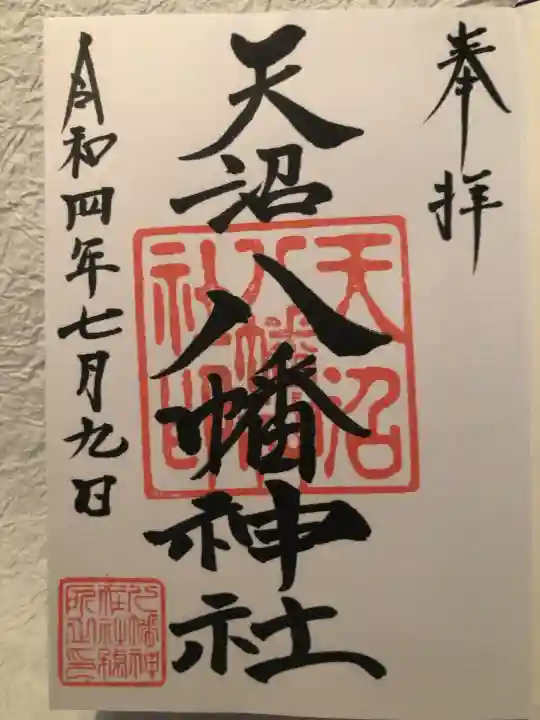 奉拝
天沼八幡神社
天沼八幡神社印
令和四年七月九日